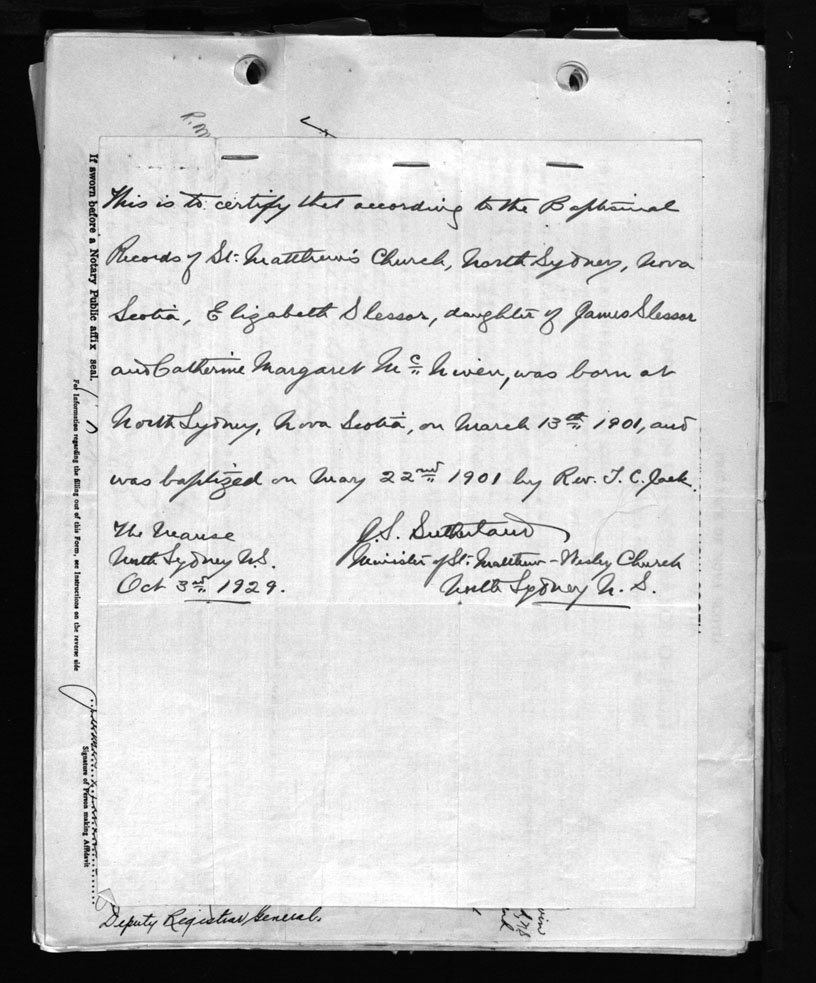 R. M
This is to certify that according to the Baptismal
Records of St. Matthew's Church, North Sydney, Nova
Scotia, Elizabeth Slessor, daughter of James Slessor
and Catherine Margaret Mc Niven, was born at
North Sydney, Nova Scotia, on March 13th 1901, and
was baptized on May 22nd 1901 by Rev. T. C. Jack.
The Manse
North Sydney N.S.
Oct 3rd 1929.
J. S. Sutherland
Minister of St. Matthew-Wesley Church
North Sydney N. S.
If sworn before a Notary Public affix seal.
For Information regarding the filling out of this Form, see Instructions on the reverse side
Signature of Person making Affidavit
Deputy Registrar General.